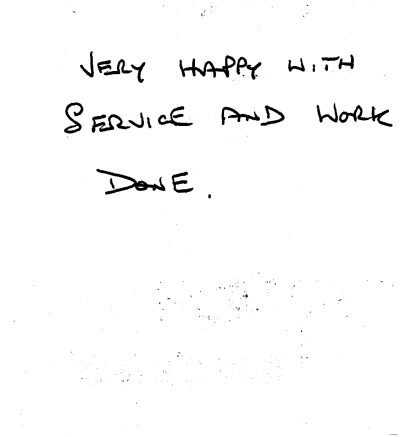 VERY HAPPY WITH
SERVICE AND WORK
DONE.